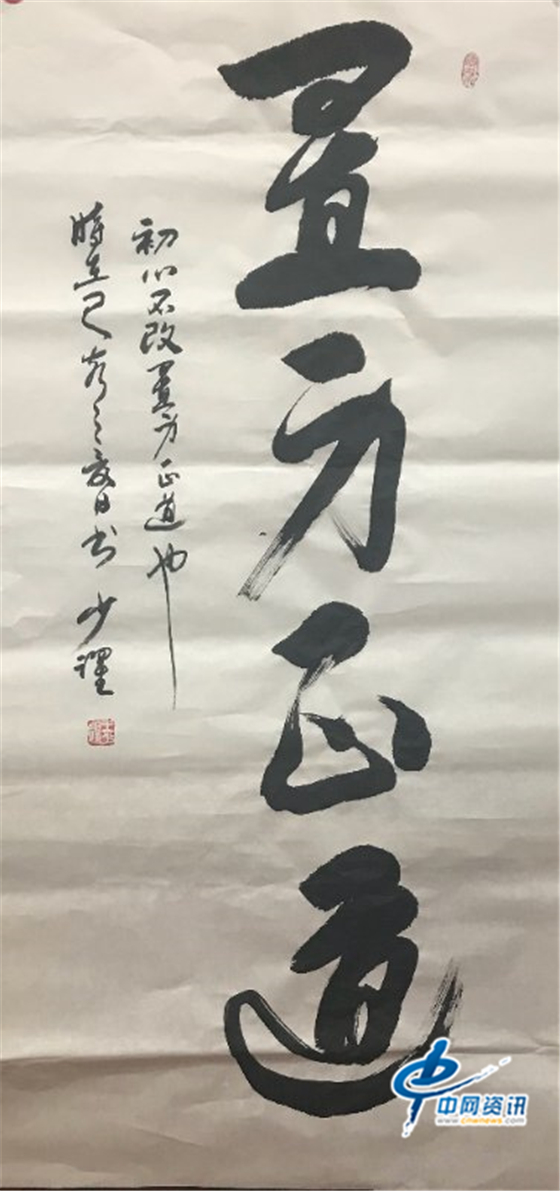 置方正道
初心不改置方正道也
時在己亥之夏日书 少理
中网资讯
www.chenews.com